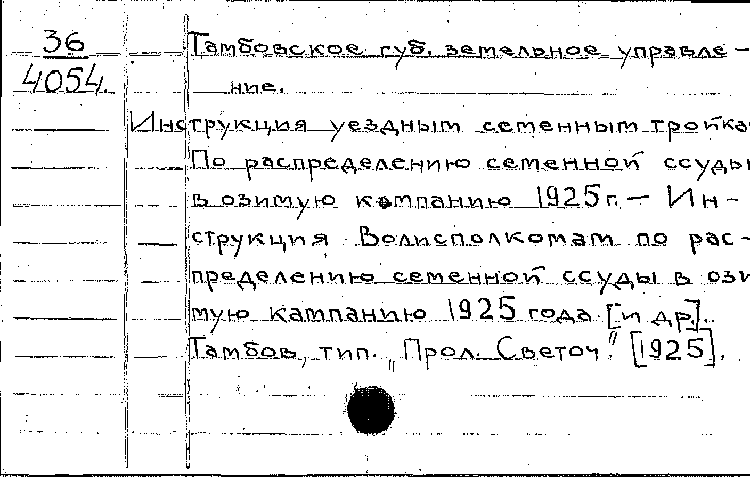 36
4054.
Тамбовское губ. земельное управле-
ние.
Инструкция уездным семенным тройка
По распределению семенной ссуды
в озимую кампанию 1925 г. – Ин-
струкция Волисполкомам по рас-
пределению семенной ссуды в ози
мую кампанию 1925 года [и др.].
Тамбов, тип. „Прол. Светоч." [1925].